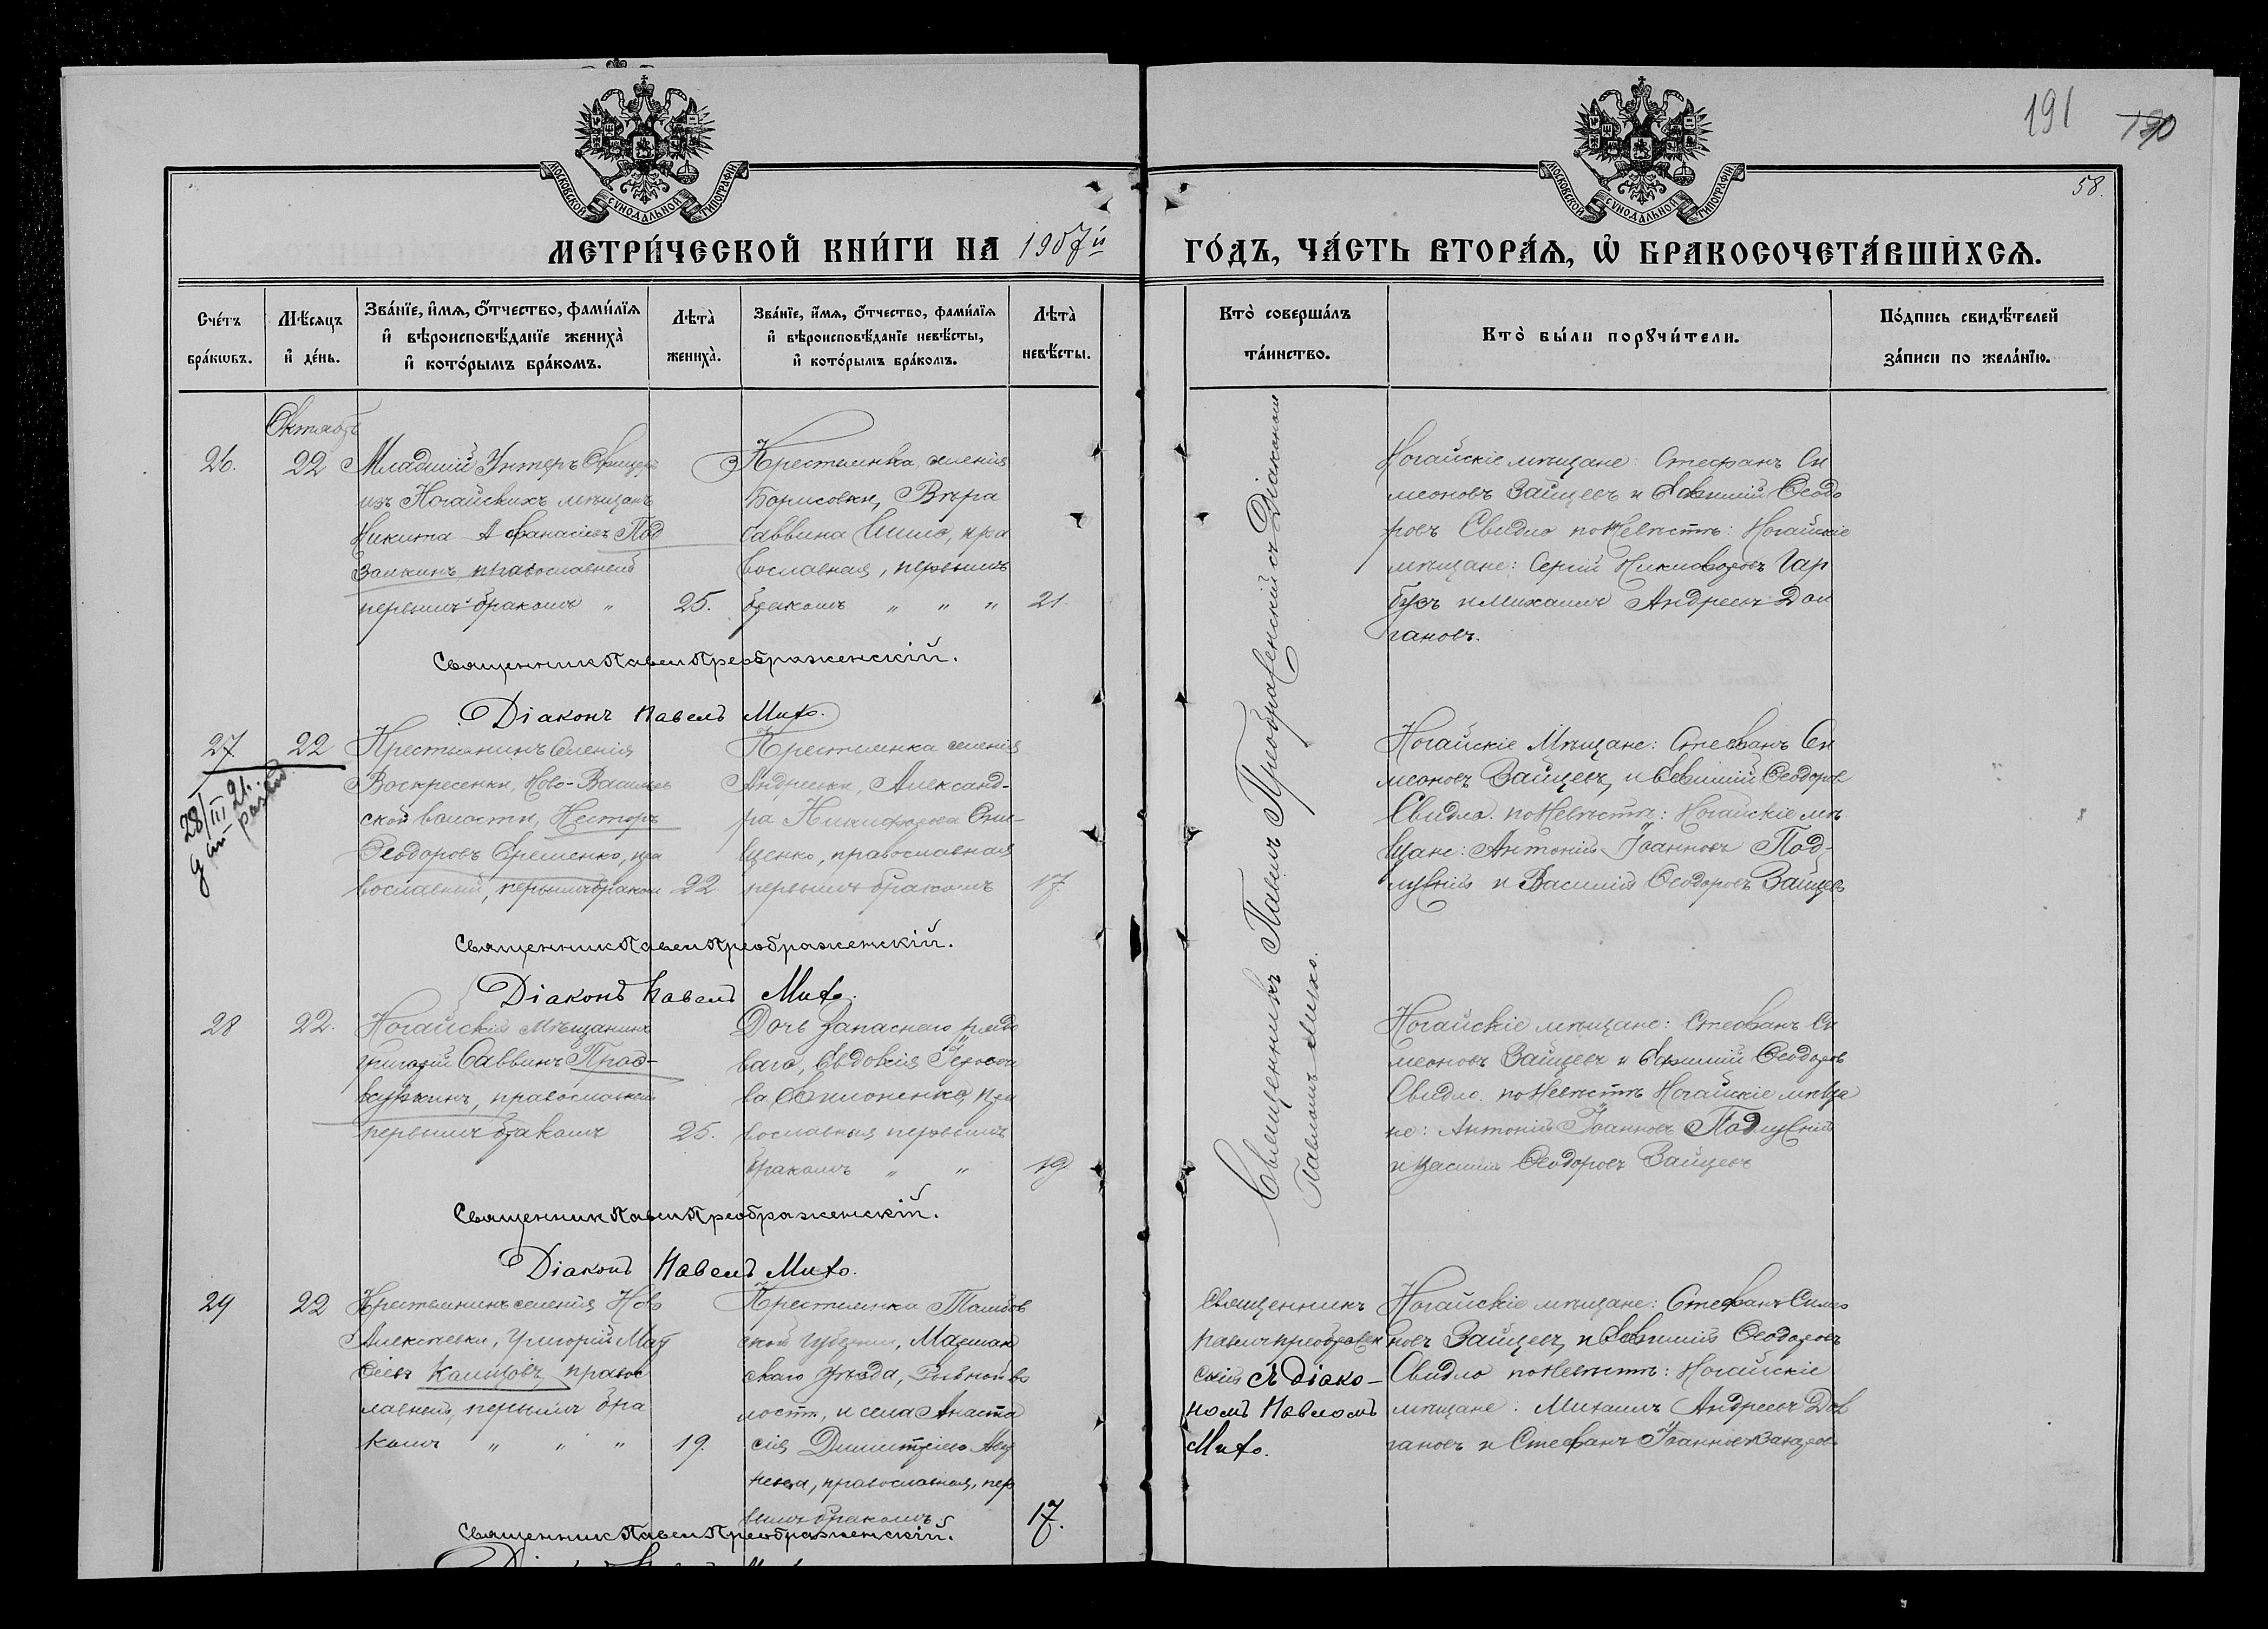 191 190
58.
МОСКОВСКОЙ СѴНОДАЛЬНОЙ ТИПОГРАФІИ
МОСКОВСКОЙ СѴНОДАЛЬНОЙ ТИПОГРАФІИ
МЕТРИ́ЧЕСКОЙ КНИ́ГИ НА 1907й ГО́ДЪ, ЧА́СТЬ ВТОРА́Ѧ, Ѡ҆ БРАКОСОЧЕТА́ВШИХСѦ.
Сче́тъ
бра́кѡвъ.
Мѣ́сяцъ
и҆ де́нь.
Зва́нїе, и҆́мѧ, ѻ҆́тчество, фами́лїѧ
и҆ вѣроисповѣ́данїе жениха̀
и҆ кото́рымъ бра́комъ.
Лѣта̀
жениха̀.
Зва́нїе, и҆́мѧ, ѻ҆́тчество, фами́лїѧ
и҆ вѣроисповѣ́данїе невѣ́сты,
и҆ кото́рымъ бра́комъ.
Лѣта̀
невѣ́сты.
Кто̀ соверша́лъ
та́инство.
Кто̀ бы́ли порꙋчи́тели.
По́дпись свидѣ́телей
за́писи по жела́нїю.
Октябр
26.
22
Младшій Унтеръ Офицеръ
изъ Ногайскихъ мѣщанъ
Никита Афанасіевъ Под
заикинъ православный
первымъ бракомъ "
25.
Крестьянка селенія
Борисовки, Вѣра
Саввина Шило, пра
вославная, первымъ
бракомъ " " "
21.
Священникъ Павелъ Преображенскій съ Діакономъ
Павломъ Михо.
Ногайскіе мѣщане: Стефанъ Си
меоновъ Зайцевъ и Евѳимій Ѳеодо
ровъ Свидло по Невѣстѣ: Ногайскіе
мѣщане: Сергій Никифоровъ Гар
бузъ и Михаилъ Андреевъ Дол
гановъ.
Священник Павел Преображенскій.
Діаконъ Павелъ Михо.
27
22
28/III 21.
Крестьянинъ Селенія
Воскресенки, Ново-Васильев
ской волости, Несторъ
Ѳеодоровъ Еременко, пра
вославный, первымъ браком
22
Крестьянка селенія
Андреевки, Александ-
ра Никифорова Они-
щенко, православная
первымъ бракомъ
17.
Ногайскіе Мѣщане: Стефанъ Си
меоновъ Зайцевъ, и Евѳимій Ѳеодоров
Свидло. по Невѣстѣ: Ногайскіе мѣ
щане: Антоній Іоанновъ Под-
лускій и Василій Ѳеодоровъ Зайцев
Священник Павел Преображенскій.
Діаконъ Павелъ Михо.
28
22.
Ногайскій Мѣщанинъ
Григорій Саввинъ
православный
первымъ бракомъ
25.
Дочь Запаснаго рядо
ваго, Евдокія
пра
вославная первымъ
бракомъ " "
19
Ногайскіе мѣщане: Стефанъ Си
меоновъ Зайцевъ и Евѳимій Ѳеодоров
Свидло. по Невѣстѣ Ногайскіе мѣща
не: Антоній Іоанновъ Подлускій
и Василій Ѳеодоровъ Зайцевъ
Священник Павел Преображенскій.
Діаконъ Павелъ Михо.
29
22
Крестьянинъ селенія Ново
Алексѣевки, Григорій
православ
ный, первымъ бра
комъ " " "
19.
Крестьянка Тамбов
ской губерніи, Моршан
скаго уѣзда,
и села Анаста
сія Димитріева
православная, пер
вымъ бракомъ
17.
Священникъ
Павелъ Преображен
скій съ Діако-
номъ Павломъ
Михо.
Ногайскіе мѣщане: Стефанъ Симео
новъ Зайцевъ, и Евѳимій Ѳеодоровъ
Свидло по Невѣстѣ: Ногайскіе
мѣщане: Михаилъ Андреевъ Дол
гановъ и Стефанъ Іоанновъ
Священник Павел Преображенскій.